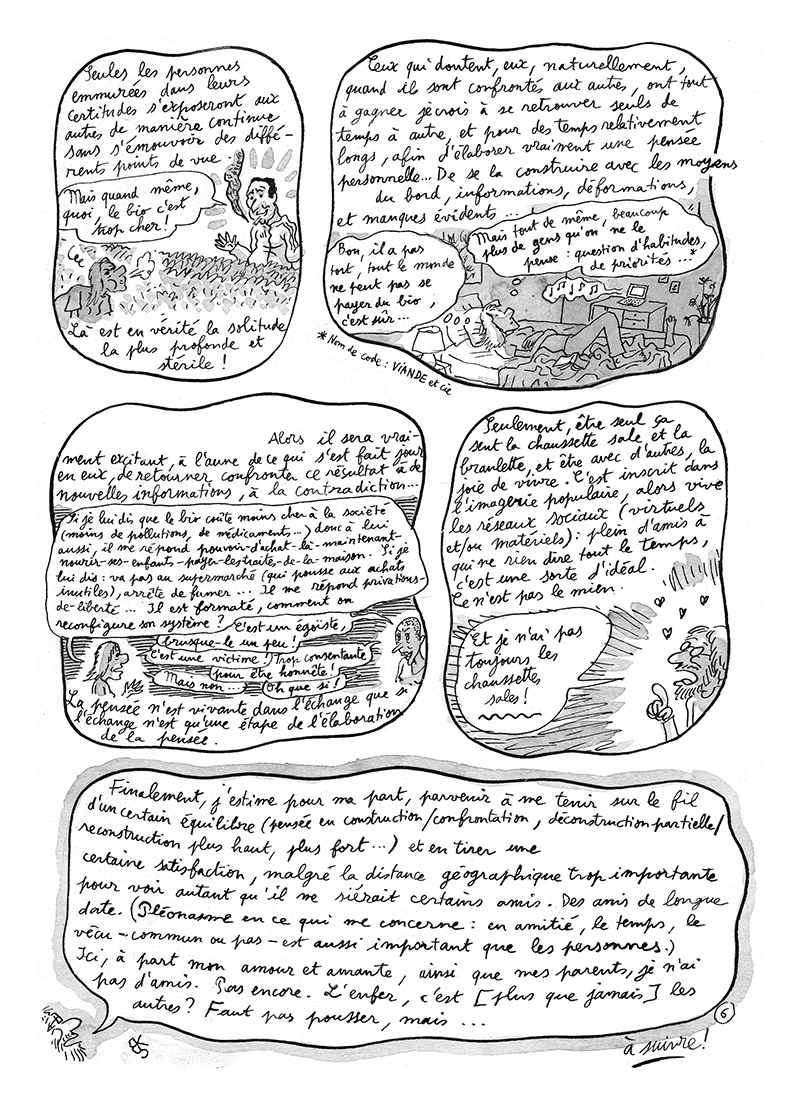 Seules les personnes
emmurées dans leurs
certitudes s'exposeront aux
autres de manière continue
sans s'émouvoir des diffé-
rents points de vue.
Mais quand même,
quoi, le bio c'est
trop cher!
Là est en vérité la solitude
la plus profonde et
stérile!
Ceux qui doutent, eux, naturellement,
quand ils sont confrontés aux autres, ont tout
à gagner je crois à se retrouver seuls de
temps à autre, et pour des temps relativement
longs, afin d'élaborer vraiment une pensée
personnelle... De se la construire avec les moyens
du bord, informations, déformations,
et manques évidents...
Bon, il a pas
tort, tout le monde
ne peut pas se
payer du bio,
c'est sûr...
Mais tout de même, beaucoup
plus de gens qu'on ne le
pense : question d'habitudes,
de priorités...*
* Nom de code : VIANDE et cie
Alors il sera vrai-
ment excitant, à l'aune de ce qui s'est fait jour
en eux, de retourner confronter ce résultat à de
nouvelles informations, à la contradiction...
Si je lui dis que le bio coûte moins cher à la société
(moins de pollutions, de médicaments...) donc à lui
aussi, il me répond pouvoir-d'achat-là-maintenant-
nourrir-ses-enfants-payer-les-traites-de-la-maison. Si je
lui dis : va pas au supermarché (qui pousse aux achats
inutiles), arrête de fumer... Il me répond privations-
de-liberté... Il est formaté, comment on
reconfigure son système?
C'est un égoïste,
brusque-le un peu!
C'est une victime!
Trop consentante
pour être honnête!
Mais non...
Oh que si!
La pensée n'est vivante dans l'échange que si
l'échange n'est qu'une étape de l'élaboration
de la pensée.
Seulement, être seul ça
sent la chaussette sale et la
branlette, et être avec d'autres, la
joie de vivre. C'est inscrit dans
l'imagerie populaire, alors vive
les réseaux sociaux (virtuels
et/ou matériels) : plein d'amis à
qui ne rien dire tout le temps,
c'est une sorte d'idéal.
Ce n'est pas le mien.
Et je n'ai pas
toujours les
chaussettes
sales!
Finalement, j'estime pour ma part, parvenir à me tenir sur le fil
d'un certain équilibre (pensée en construction/confrontation, déconstruction partielle/
reconstruction plus haut, plus fort...) et en tirer une
certaine satisfaction, malgré la distance géographique trop importante
pour voir autant qu'il me siérait certains amis. Des amis de longue
date. (Pléonasme en ce qui me concerne : en amitié, le temps, le
vécu - commun ou pas - est aussi important que les personnes.)
Ici, à part mon amour et amante, ainsi que mes parents, je n'ai
pas d'amis. Pas encore. L'enfer, c'est [plus que jamais] les
autres? Faut pas pousser, mais...
6
à suivre!